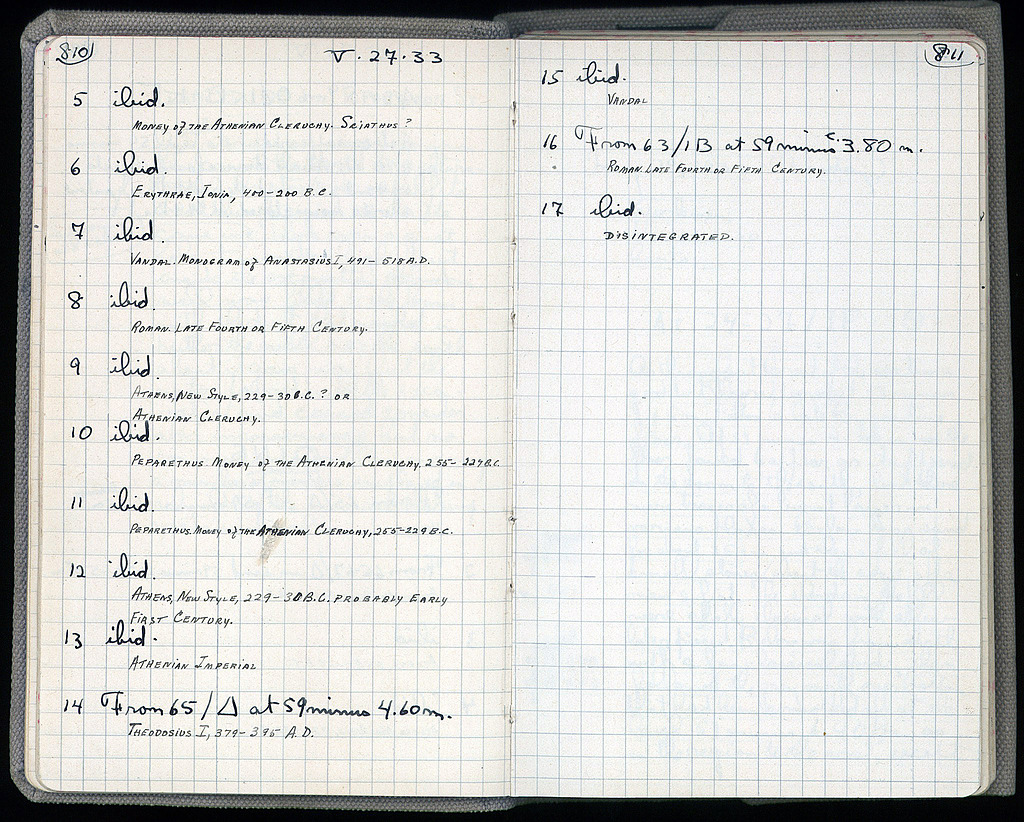 810
V · 27 · 33
5 ibid.
MONEY of THE ATHENIAN CLERUCHY. SCIATHUS ?
6 ibid.
ERYTHRAE, IONIA, 400-200 B.C.
7 ibid.
VANDAL. MONOGRAM of ANASTASIUS I, 491-518 A.D.
8 ibid.
ROMAN. LATE FOURTH OR FIFTH CENTURY.
9 ibid.
ATHENS, NEW STYLE, 229-30 B.C. ? OR
ATHENIAN CLERUCHY.
10 ibid.
PEPARETHUS MONEY of THE ATHENIAN CLERUCHY, 255-229 B.C.
11 ibid.
PEPARETHUS. MONEY of THE ATHENIAN CLERUCHY, 255-229 B.C.
12 ibid.
ATHENS, NEW STYLE, 229-30 B.C. PROBABLY EARLY
FIRST CENTURY.
13 ibid.
ATHENIAN IMPERIAL
14 From 65/Δ at 59 minus 4.60 m.
THEODOSIUS I, 379-395 A.D.
811
15 ibid.
VANDAL
16 From 63/ΙΒ at 59 minus c. 3.80 m.
ROMAN. LATE FOURTH OR FIFTH CENTURY.
17 ibid.
DISINTEGRATED.